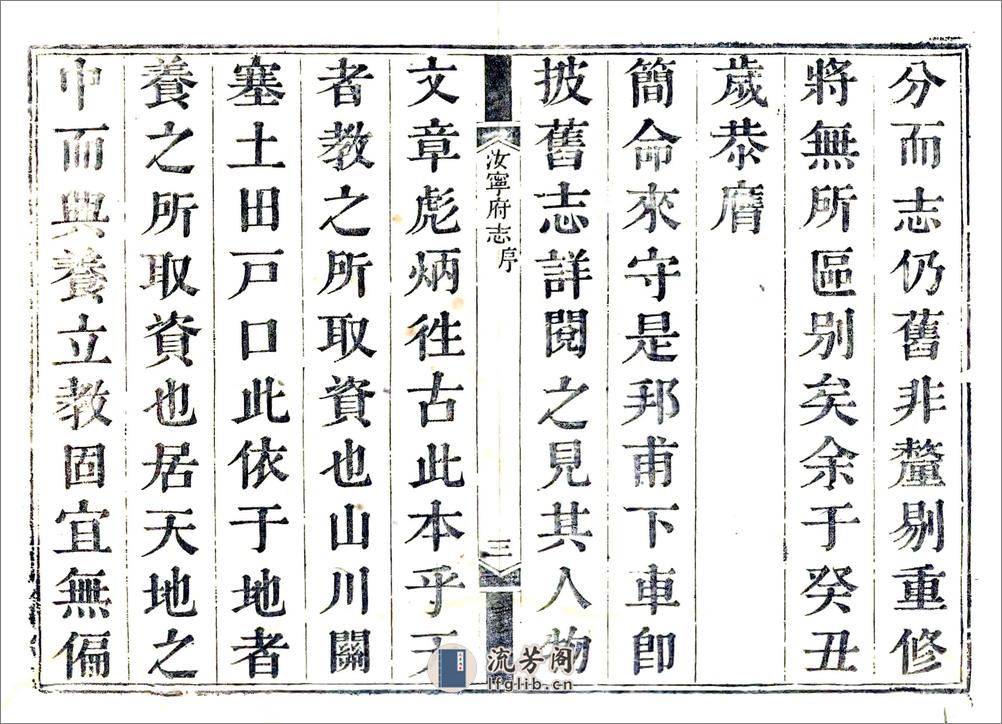 分而志仍舊非釐剔重修
將無所區别矣余于癸丑
歲恭膺
簡命來守是邦甫下車卽
披舊志詳閱之見其人物
汝寧府志序
三
文章彪炳徃古此本乎天
者教之所取資也山川關
塞土田戸口此依于地者
養之所取資也居天地之
中而興養立教固宜無偏
流芳阁
lfglib.cn